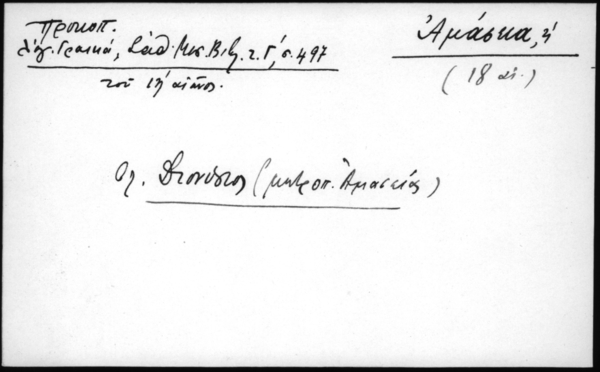 Προκοπ.
λόγ. Γραικιά, Σάθ. Μεσ. Βιβ. τ. Γ', σ. 497
τοῦ ιη' αἰῶνος.
Ἀμάσκα, ἡ
(18 αἰ.)
Διονύσιος (μητροπ. Ἀμασείας)